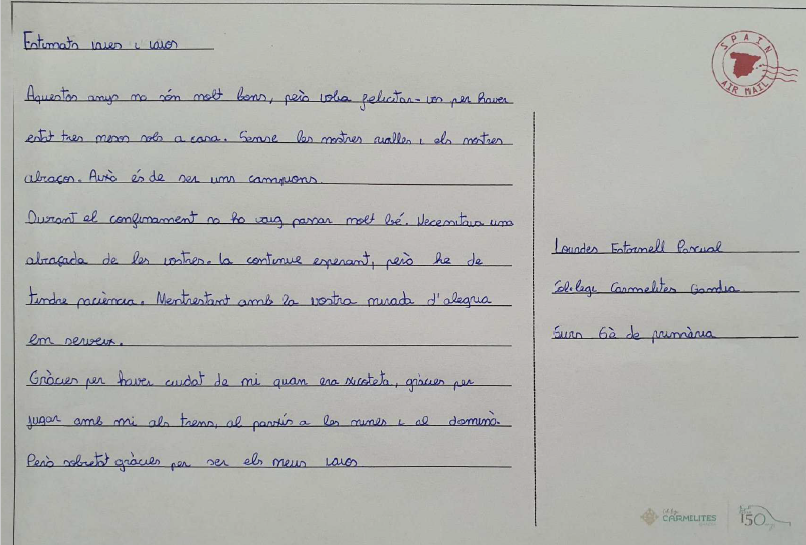 Estimats iaies i iaios
SPAIN
AIR MAIL
Aquestos anys no són molt bons, però volia felicitar-vos per haver
estat tres mesos sols a casa. Sense les nostres rialles i els nostres
abraços. Això és de ser uns campions.
Durant el confinament no ho vaig passar molt bé. Necesitava una
abraçada de les vostres. La continue esperant, però he de
tindre paciència. Mentrestant amb la vostra mirada d'alegria
em serveix.
Gràcies per haver cuidat de mi quan era xicoteta, gràcies per
jugar amb mi als trens, al parxís a les nines i al dominó.
Però sobretot gràcies per ser els meus iaios
Lourdes Estornell Pascual
Col·legi Carmelites Gandia
Curs 6è de primària
CARMELITES
150